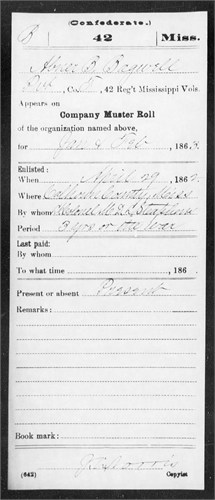 (Confederate.)
B 42 Miss.
Abner B. Bagwell
Pvt, Co. , 42 Reg't Mississippi Vols.
Appears on
Company Muster Roll
of the organization named above,
for Jan & Feb , 186 .
Enlisted:
When April 29 , 186 .
Where Calhoun County, Miss
By whom
Period 3 yrs or the War
Last paid:
By whom
To what time , 186 .
Present or absent Present
Remarks:
Book mark:
(642) Copyist